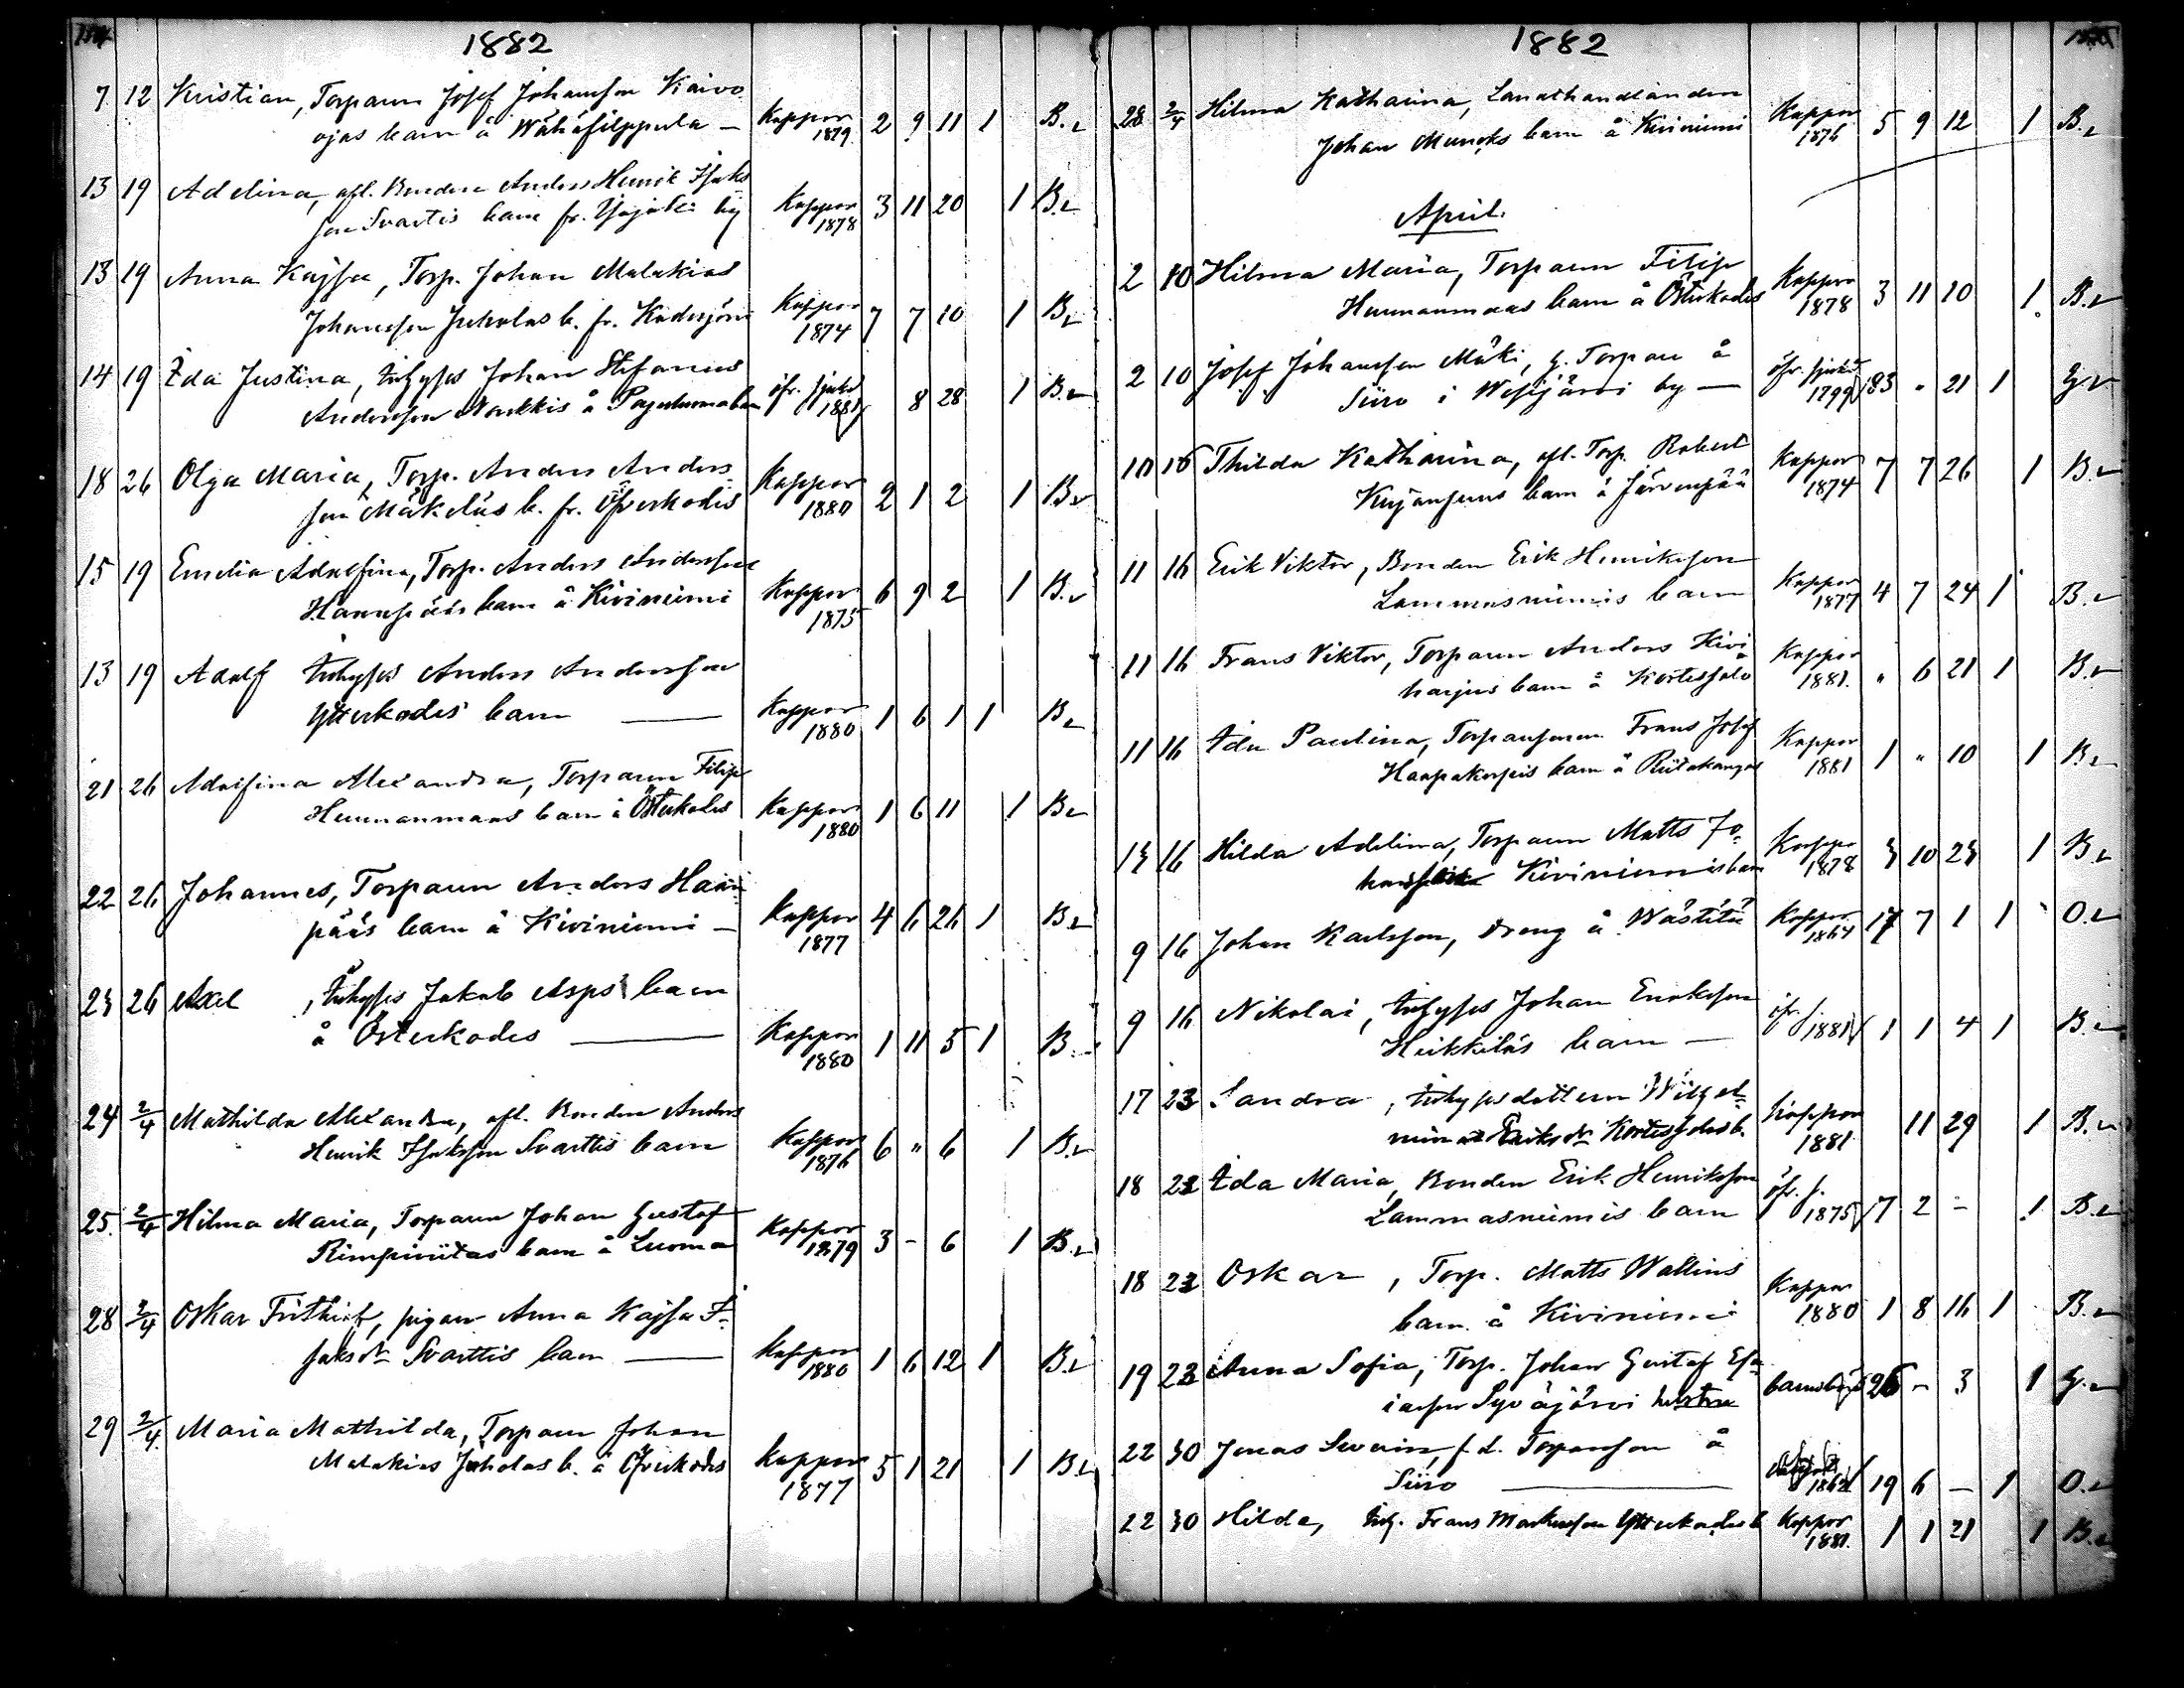 1882
7 12 Kristian, Torparn Josef Johansson Kaivo-
ojas barn å Wähäfilppula — Koppor 1879 2 9 11 1 B.
13 19 Adelina, afl. Bonden Anders Henrik Isaks
son Svartis barn fr. by Koppor 1878 3 11 20 1 B.
13 19 Anna Kajsa, Torp. Johan Malakias
Johansson Juholas b. fr. Koppor 1874 7 7 10 1 B.
14 19 Ida Justina, inhyses Johan Stefanus
Andersson å öfr. sjukd 1881 8 28 1 B.
18 26 Olga Maria, Torp. Anders Anders
son Mäkeläs b. fr. Öfverkodis Koppor 1880 2 1 2 1 B.
15 19 Emelia Adolfina, Torp. Anders Andersson
Haanpääs barn å Kiviniemi Koppor 1875 6 9 2 1 B.
13 19 Adolf inhyses Anders Andersson
Ytterkodes barn — Koppor 1880 1 6 1 1 B.
21 26 Adolfina Alexandra, Torparn Filip
Hunnanmaas barn å Österkodes Koppor 1880 1 6 11 1 B.
22 26 Johannes, Torparn Anders Haan
pääs barn å Kiviniemi — Koppor 1877 4 6 26 1 B.
23 26 Axel , inhyses Jakob Asps barn
å Österkodes — Koppor 1880 1 11 5 1 B.
24 2/4 Mathilda Alexandra, afl. Bonden Anders
Henrik Isaksson Svarttis barn Koppor 1876 6 " 6 1 B.
25 2/4 Hilma Maria, Torparn Johan Gustaf
Rimpiniitas barn å Luoma Koppor 1879 3 - 6 1 B.
28 2/4 Oskar Frithiof, pigan Anna Kajsa I-
saksdr Svarttis barn — Koppor 1880 1 6 12 1 B.
29 2/4 Maria Mathilda, Torparn Johan
Malakias Juholas b. å Öfverkodes Koppor 1877 5 1 21 1 B.
1882
28 2/4 Hilma Katharina, Lanathandlanden
Johan Muncks barn å Kiviniemi Koppor 1876 5 9 12 1 B.
April.
2 10 Hilma Maria, Torparn Filip
Hunnanmaas barn å Österkodes Koppor 1878 3 11 10 1 B.
2 10 Josef Johansson Mäki, g. Torpare å
Siiro i Wesijärvi by — öfr. sjukd 1799 83 " 21 1 G.
10 16 Thilda Katharina, afl. Torp. Robert
Kujanpuus barn å Järvenpää Koppor 1874 7 7 26 1 B.
11 16 Erik Viktor, Bonden Erik Henriksson
Lammasniemis barn Koppor 1877 4 7 24 1 B.
11 16 Frans Viktor, Torparn Anders Kivi
harjus barn å Kortessalo Koppor 1881. " 6 21 1 B.
11 16 Ida Paulina, Torparsonen Frans Josef
Haapakorpis barn å Riitakangas Koppor 1881 1 " 10 1 B.
13 16 Hilda Adelina, Torparn Matts Jo-
Kiviniemis barn Koppor 1878 3 10 23 1 B.
9 16 Johan Karlsson, dräng å Koppor 1864 17 7 1 1 O.
9 16 Nikolai, inhyses Johan Enoksson
Heikkiläs barn — öfr. s. 1881 1 1 4 1 B.
17 23 Sandra , inhysesdottern Wilhel-
mina Eriksdr Kortesjohis b. Koppor 1881 11 29 1 B.
18 23 Ida Maria, Bonden Erik Henriksson
Lammasniemis barn öfr. s. 1875 7 2 - 1 B.
18 23 Oskar , Torp. Matts Wallins
barn å Kiviniemi Koppor 1880 1 8 16 1 B.
19 23 Anna Sofia, Torp. Johan Gustaf Esa
iasson Syväjärvi hustru barnsbörd 26 - 3 1 G.
22 30 Jonas Severin, f. d. Torparson å
Siiro — 1862 19 6 — 1 O.
22 30 Hilda, inh. Frans Markusson Ytterkodes b Koppor 1881. 1 1 21 1 B.